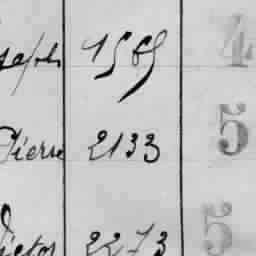 Joseph 1565 4
Pierre 2133 5
Victor 2273 5